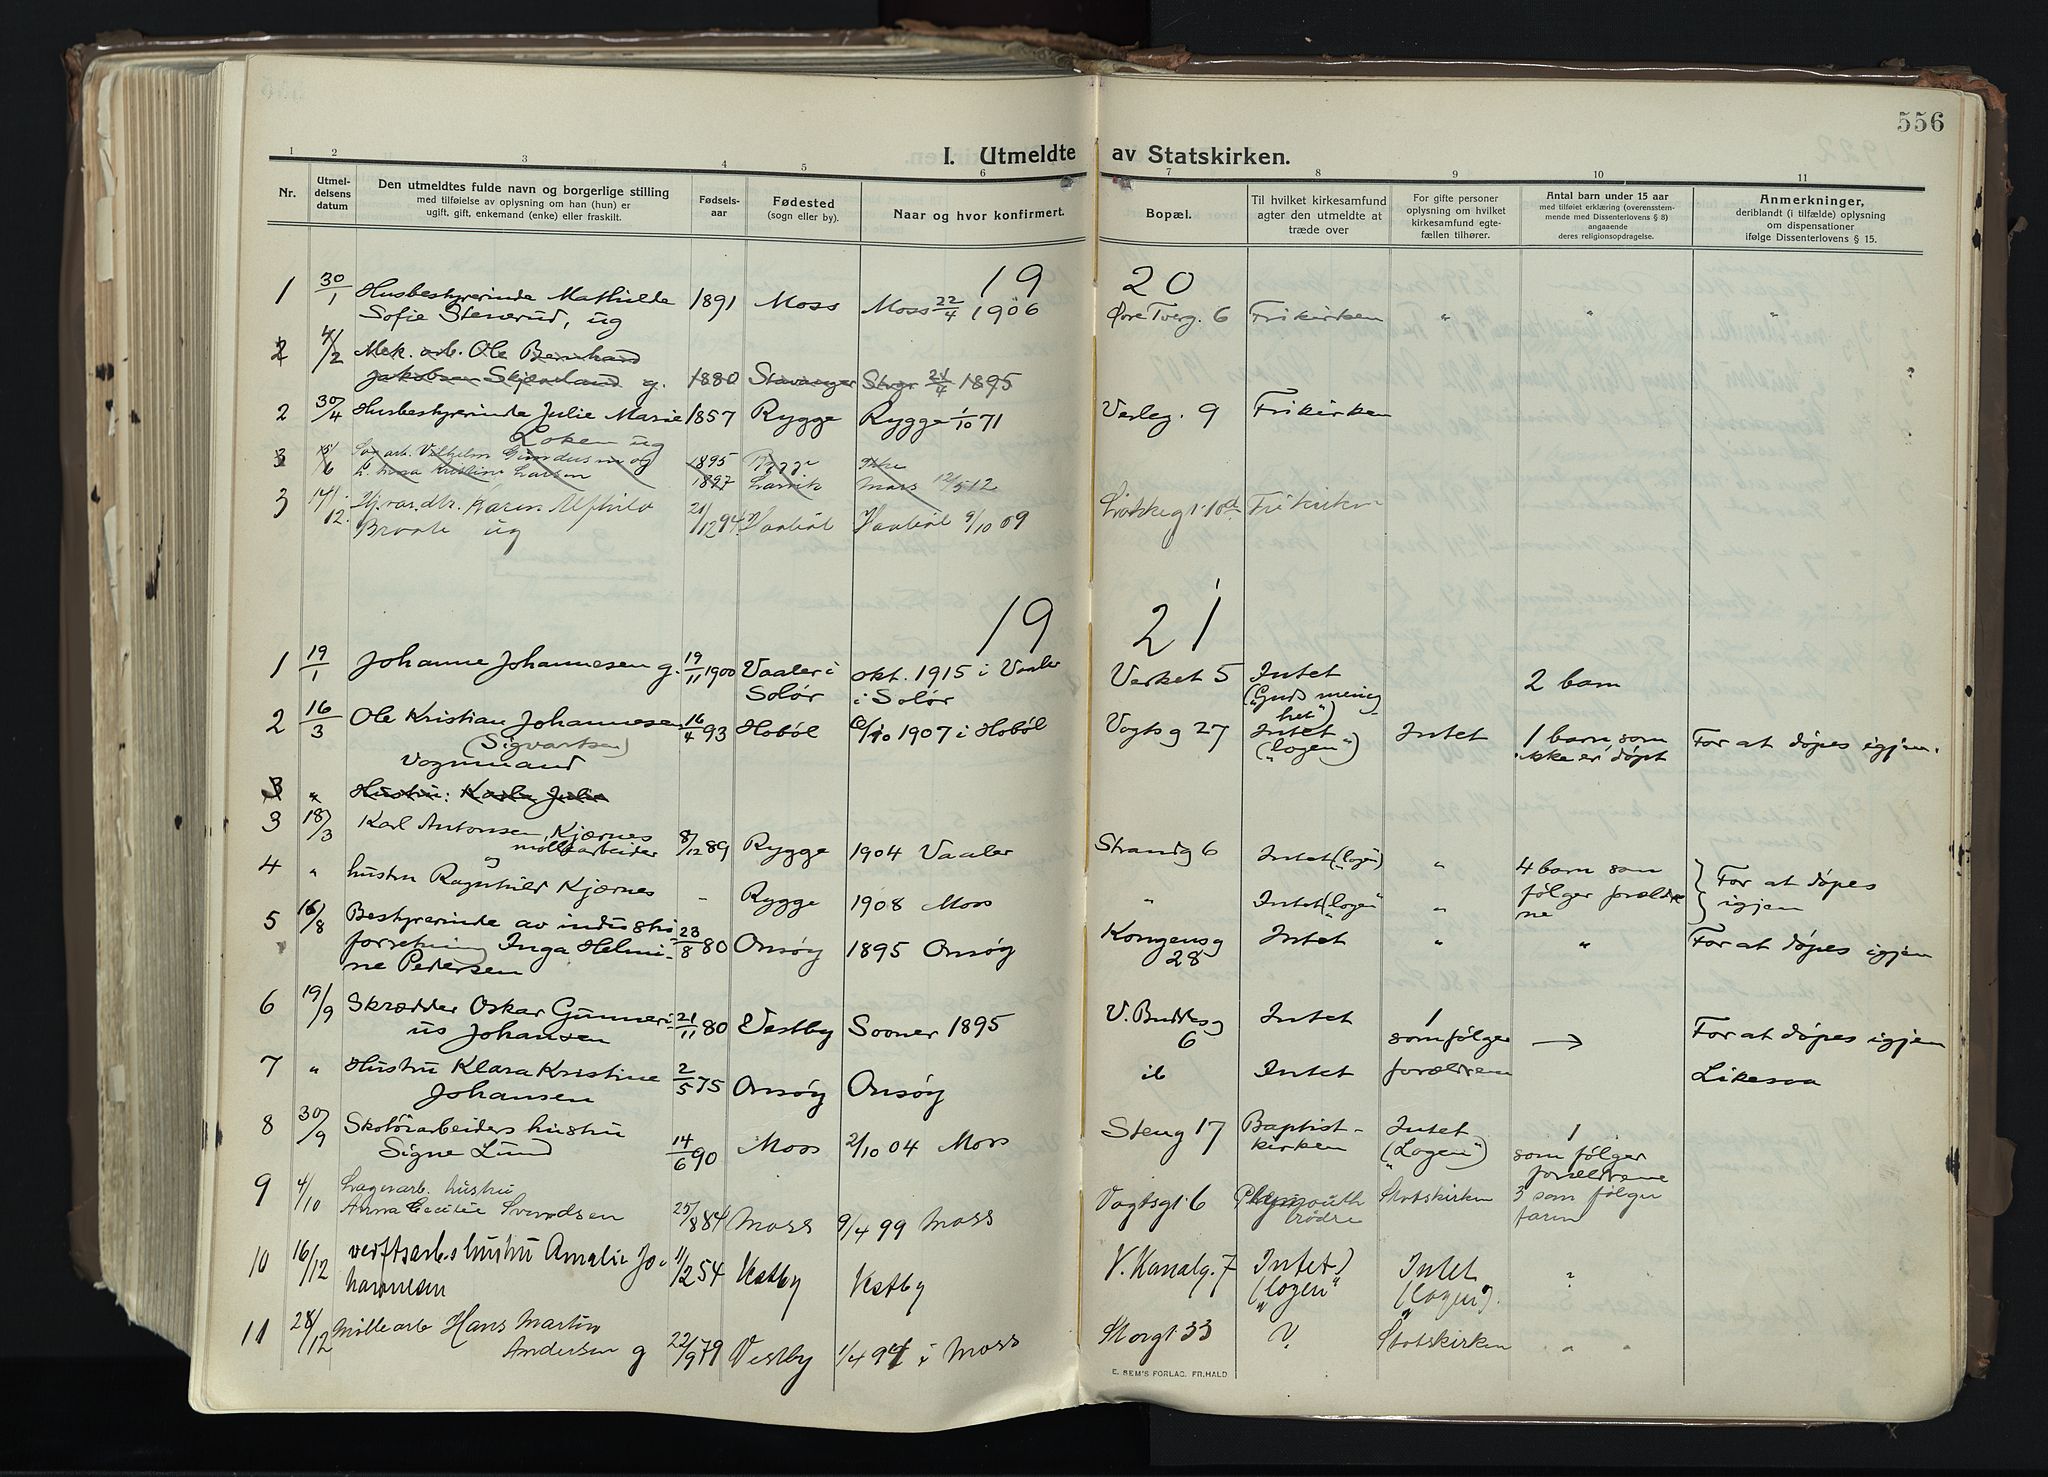 556
I. Utmeldte av Statskirken.
1 2 3 4 5 6 7 8 9 10 11
Nr.
Utmel-
delsens
datum
Den utmeldtes fulde navn og borgerlige stilling
med tilføielse av oplysning om han (hun) er
ugift, gift, enkemand (enke) eller fraskilt.
Fødsels-
aar
Fødested
(sogn eller by).
Naar og hvor konfirmert.
Bopæl.
Til hvilket kirkesamfund
agter den utmeldte at
træde over
For gifte personer
oplysning om hvilket
kirkesamfund egte-
fællen tilhører.
Antal barn under 15 aar
med tilføiet erklæring (overensstem-
mende med Dissenterlovens § 8)
angaaende
deres religionsopdragelse.
Anmerkninger,
deriblandt (i tilfælde) oplysning
om dispensationer
ifølge Dissenterlovens § 15.
19 20
1 30/1 Husbestyrerinde Mathilde 1891 Moss Moss 22/4 1906 Øvre Tverg. 6 Frikirken " " "
Sofie Stenerud, ug
2 4/2 Mek. arb. Ole Bernhard
Jakobsen Skjæveland g. 1880 Stavanger Stvgr 21/4 1895
2 30/4 Husbestyrerinde Julie Marie 1857 Rygge Rygge 1/10 71 Verleg. 9 Frikirken
Loken ug
3 15/6 Vilhelm Gundersen og 1895 Rygge ikke
Kristine Larsen 1897 Larvik Moss 12/5 12
3 14/12. Karen Alfhild 21/12 94 Vaabøl Vaabøl 9/10 09 Frikirken
Braate ug
19 21
1 19/1 Johanne Johannesen g. 19/11 1900 Vaaler i okt. 1915 i Vaaler Verket 5 Intet 2 barn
Solør i Solør ("Guds menig-
het")
2 16/3 Ole Kristian Johannesen 16/4 93 Hobøl 6/10 1907 i Hobøl Vogtsg 27 Intet Intet 1 barn som For at døpes igjen.
(Sigvartsen) ("logen") ikke er døpt
Vognmand
3 " Hustru: Karla Julie
3 18/3 Karl Antonsen Kjærnes 8/12 89 Rygge 1904 Vaaler Strandg 6 Intet ("logen") " 4 barn som For at døpes
møllearbeider følger forældre igjen
4 " hustru Ragnhild Kjærnes - Rygge 1908 Moss " Intet ("logen") " ne
5 16/8 Bestyrerinde av industri
forretning Inga Helmi- 23/8 80 Onsøy 1895 Onsøy Kongensg Intet " " For at døpes igjen
ne Pedersen 28
6 19/9 Skrædder Oskar Gunneri- 21/11 80 Vestby Sooner 1895 V. Buddesg Intet 1
us Johansen 6 som følger → For at døpes igjen
7 " Hustru Klara Kristine 2/5 75 Onsøy Onsøy ib Intet forældrene Likesaa
Johansen
8 30/9 Skotøiarbeiders hustru Steng 17 Baptist- Intet 1
Signe Lund 14/6 90 Moss 2/10 04 Moss kirken ("Logen") som følger
forældrene
9 4/10 Lagerarb. hustru Vogtsgt. 6 Plymouth Statskirken 3 som følger
Anna Cecilie Svendsen 25/8 84 Moss 9/4 99 Moss brødre faren
10 16/12 verftsarb.s hustru Amalie Jo- 11/2 54 Vestby Vestby V. Kanalg. 7 Intet Intet "
hannesen ("logen") ("logen").
11 28/12 Møllearb Hans Martin
Andersen g 22/9 79 Vestby 1/4 94 i Moss Storgt 33 ? Statskirken " "
E. SEM'S FORLAG. FR.HALD